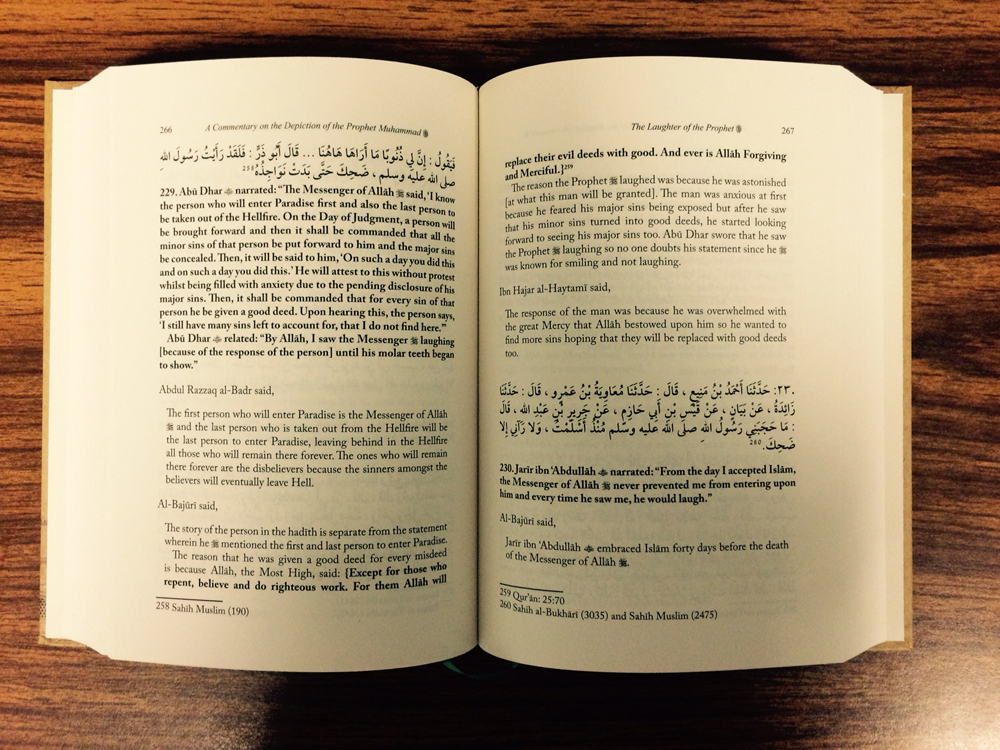 266 A Commentary on the Depiction of the Prophet Muhammad ﷺ
فَيَقُولُ : إِنَّ لِي ذُنُوبًا مَا أَرَاهَا هَاهُنَا ... قَالَ أَبُو ذَرٍّ : فَلَقَدْ رَأَيْتُ رَسُولَ اللهِ
صلى الله عليه وسلم ، ضَحِكَ حَتَّى بَدَتْ نَوَاجِذُهُ 258
229. Abū Dhar narrated: “The Messenger of Allāh ﷺ said, ‘I know
the person who will enter Paradise first and also the last person to
be taken out of the Hellfire. On the Day of Judgment, a person will
be brought forward and then it shall be commanded that all the
minor sins of that person be put forward to him and the major sins
be concealed. Then, it will be said to him, ‘On such a day you did this
and on such a day you did this.’ He will attest to this without protest
whilst being filled with anxiety due to the pending disclosure of his
major sins. Then, it shall be commanded that for every sin of that
person he be given a good deed. Upon hearing this, the person says,
‘I still have many sins left to account for, that I do not find here.”
Abū Dhar related: “By Allāh, I saw the Messenger ﷺ laughing
[because of the response of the person] until his molar teeth began
to show.”
Abdul Razzaq al-Badr said,
The first person who will enter Paradise is the Messenger of Allāh
ﷺ and the last person who is taken out from the Hellfire will be
the last person to enter Paradise, leaving behind in the Hellfire
all those who will remain there forever. The ones who will remain
there forever are the disbelievers because the sinners amongst the
believers will eventually leave Hell.
Al-Bajūrī said,
The story of the person in the hadīth is separate from the statement
wherein he ﷺ mentioned the first and last person to enter Paradise.
The reason that he was given a good deed for every misdeed
is because Allāh, the Most High, said: {Except for those who
repent, believe and do righteous work. For them Allāh will
258 Sahīh Muslim (190)
The Laughter of the Prophet ﷺ 267
replace their evil deeds with good. And ever is Allāh Forgiving
and Merciful.}259
The reason the Prophet ﷺ laughed was because he was astonished
[at what this man will be granted]. The man was anxious at first
because he feared his major sins being exposed but after he saw
that his minor sins turned into good deeds, he started looking
forward to seeing his major sins too. Abū Dhar swore that he saw
the Prophet ﷺ laughing so no one doubts his statement since he ﷺ
was known for smiling and not laughing.
Ibn Hajar al-Haytamī said,
The response of the man was because he was overwhelmed with
the great Mercy that Allāh bestowed upon him so he wanted to
find more sins hoping that they will be replaced with good deeds
too.
٢٣٠. حَدَّثَنَا أَحْمَدُ بْنُ مَنِيعٍ ، قَالَ : حَدَّثَنَا مُعَاوِيَةُ بْنُ عَمْرٍو ، قَالَ : حَدَّثَنَا
زَائِدَةُ ، عَنْ بَيَانٍ ، عَنْ قَيْسِ بْنِ أَبِي حَازِمٍ ، عَنْ جَرِيرِ بْنِ عَبْدِ الله ، قَالَ
: مَا حَجَبَنِي رَسُولُ اللهِ صلَّى الله عليه وسلَّم مُنْذُ أَسْلَمْتُ ، وَلا رَآنِي إِلا
ضَحِكَ. 260
230. Jarīr ibn ‘Abdullāh narrated: “From the day I accepted Islām,
the Messenger of Allāh ﷺ never prevented me from entering upon
him and every time he saw me, he would laugh.”
Al-Bajūrī said,
Jarīr ibn ‘Abdullāh embraced Islām forty days before the death
of the Messenger of Allāh ﷺ.
259 Qur’ān: 25:70
260 Sahīh al-Bukhārī (3035) and Sahīh Muslim (2475)